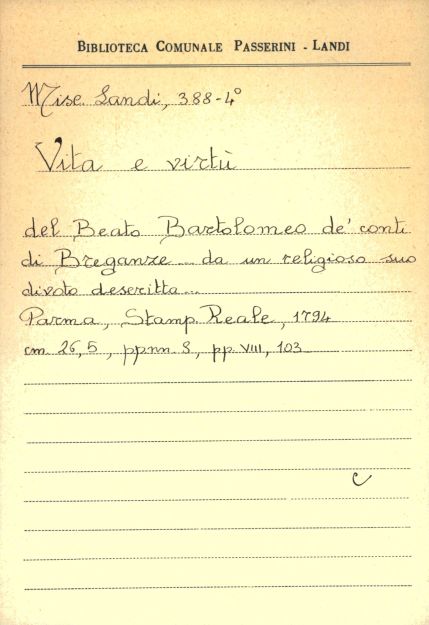 BIBLIOTECA COMUNALE PASSERINI - LANDI
Misc. Landi, 388-4°
Vita e virtù
del Beato Bartolomeo de' conti
di Breganze... da un religioso suo
divoto descritta...
Parma, Stamp. Reale, 1794
cm. 26,5, ppnn. 8, pp. VIII, 103
c